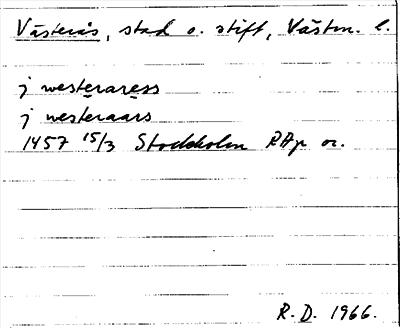 Västerås, stad o. stift, Västm. l.
j westeraress
j westeraars
1457 15/3 Stockholm RAp or.
R. D. 1966.